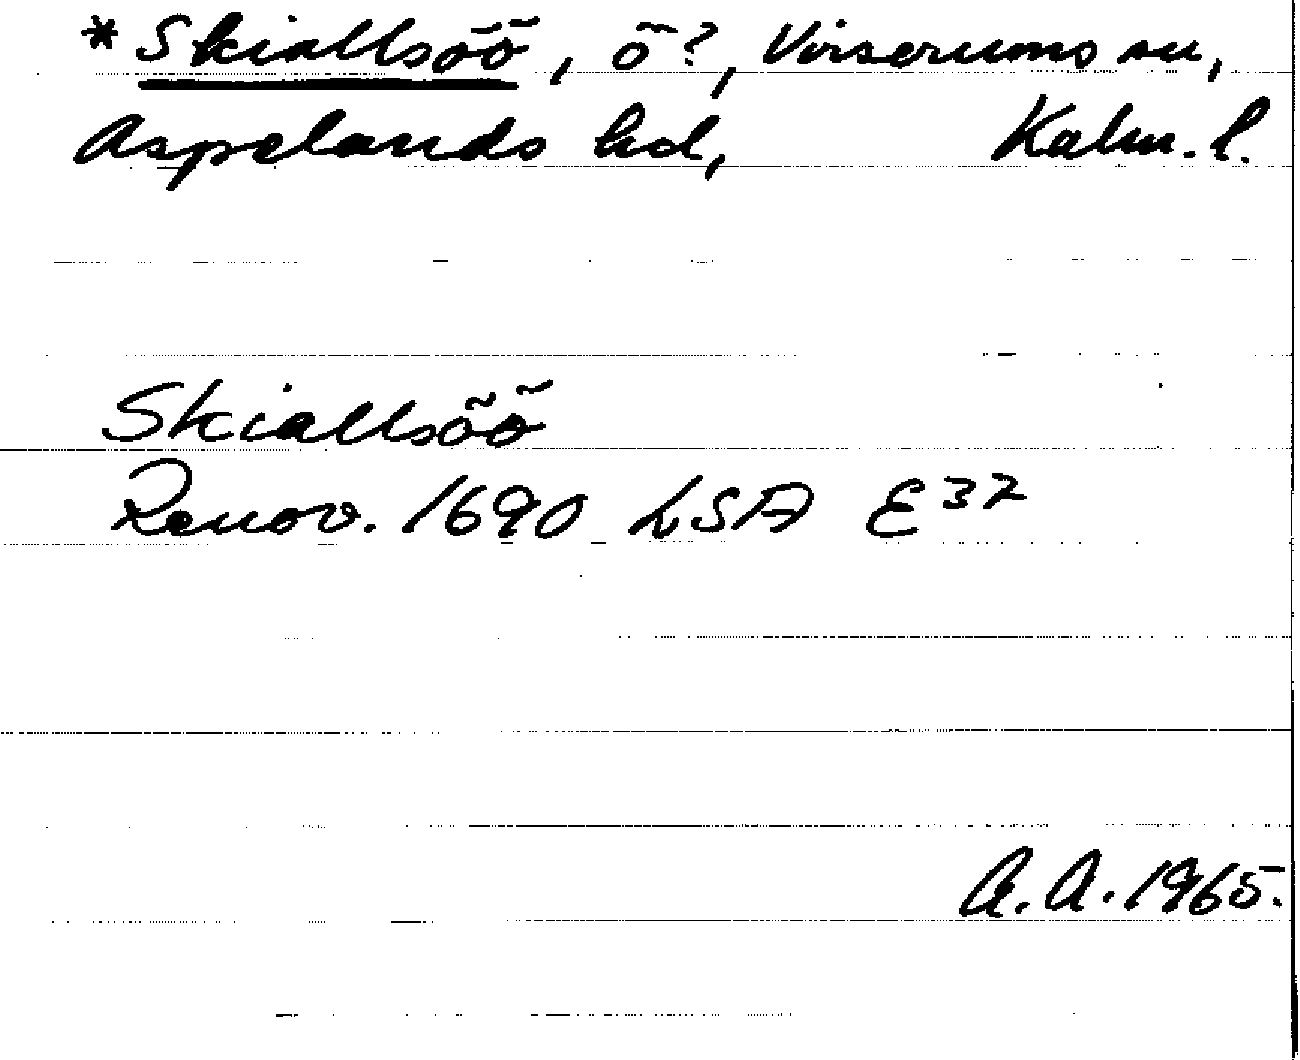 *Skiallsöö, ö?, Virserums sn,
Aspelands hd, Kalm. l.
Skiallsöö
Renov. 1690 LSA E 37
A.A. 1965.